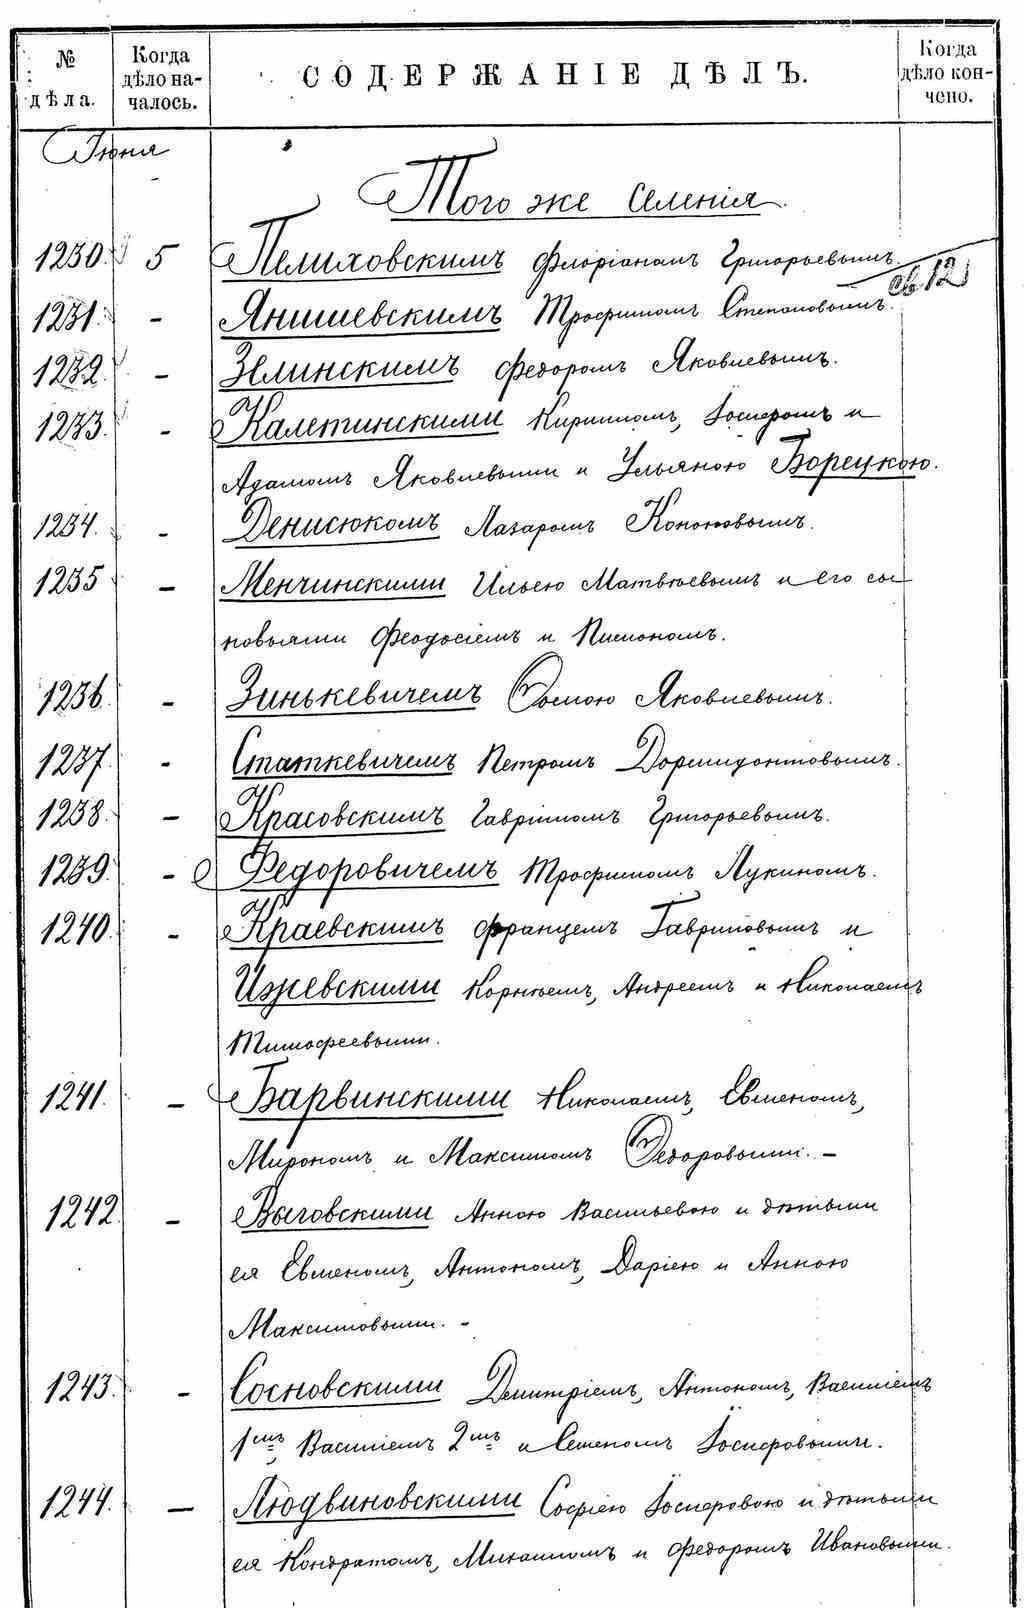 № дѣла.
Когда дѣло на-
чалось.
СОДЕРЖАНІЕ ДѢЛЪ.
Когда
дѣло кон-
чено.
Іюня
Того же селенія.
1230. 5 Пелиховскимъ Флоріаномъ Григорьевымъ.
св 12
1231. - Янишевскимъ Трофимомъ Степановымъ.
1232. - Зелинскимъ Федоромъ Яковлевымъ.
1233. - Калетинскими Кириломъ, Іосифомъ и
Адамомъ Яковлевыми и Ульяною Борецкою.
1234. - Денисюкомъ Лазаромъ Кононовымъ.
1235 - Менчинскими Ильею Матвѣевымъ и его сы
новьями Феодосіемъ и Пименомъ.
1236. - Зинькевичемъ Фомою Яковлевымъ.
1237. - Статкевичемъ Петромъ Дормидонтовымъ.
1238. - Красовскимъ Гавріиломъ Григорьевымъ.
1239. - Федоровичемъ Трофимомъ Лукинымъ.
1240. - Краевскимъ Францемъ Гавриловымъ и
Ижевскими Корнѣемъ, Андреемъ и Николаемъ
Тимофеевыми.
1241. - Барвинскими Николаемъ, Евменомъ,
Мирономъ и Максимомъ Федоровыми. -
1242. - Выговскими Анною Васильевою и дѣтьми
ея Евменомъ, Антономъ, Даріею и Анною
Максимовыми. -
1243. - Сосновскими Димитріемъ, Антономъ, Василіемъ
1мъ, Василіемъ 2мъ и Семеномъ Іосифовыми.
1244. - Людвиновскими Софіею Іосифовою и дѣтьми
ея Кондратомъ, Михаиломъ и Федоромъ Ивановыми.